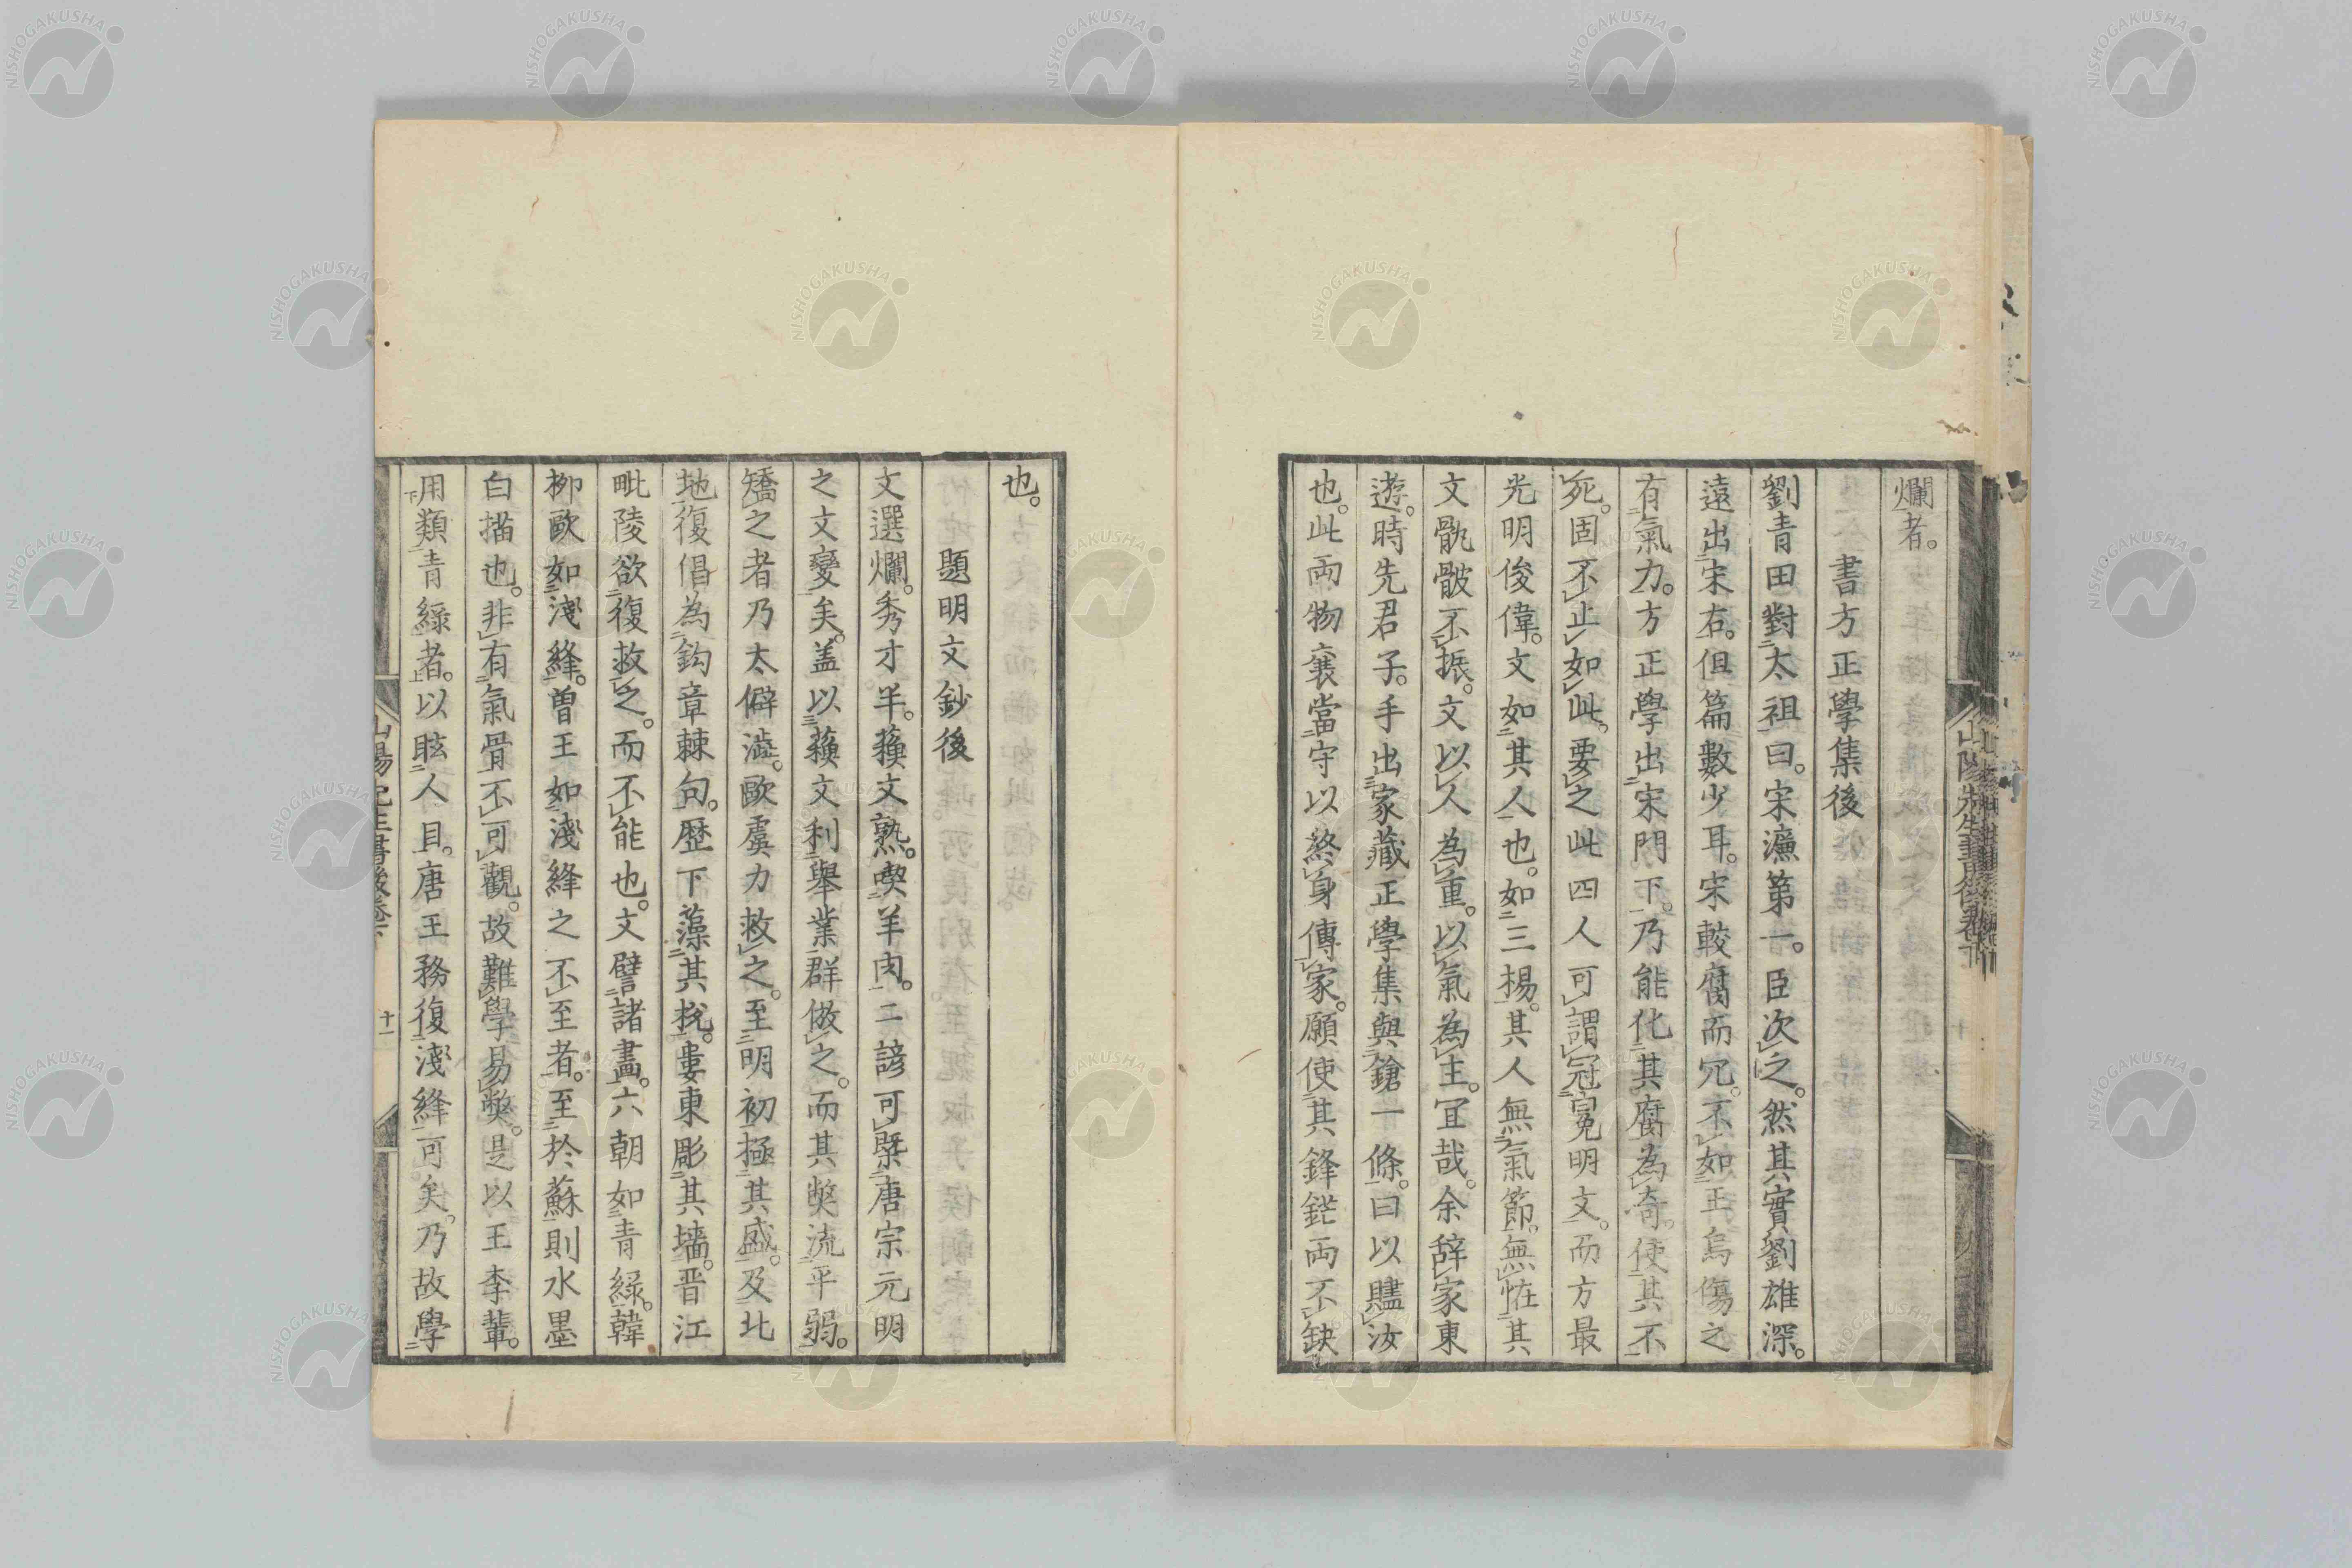 爛者。
書方正學集後
劉青田對太祖曰。宋濂第一。臣次之。然其實劉雄深。
遠出宋右。但篇數少耳。宋較腐而冗。不如王烏傷之
有氣力。方正學出宋門下。乃能化其腐為奇。使其不
死。固不止如此。要之此四人可謂冠冕明文。而方最
光明俊偉。文如其人也。如三楊。其人無氣節。無恠其
文骩骳不振。文以人為重。以氣為主。冝哉。余辞家東
遊。時先君子。手出家藏正學集與鎗一條。曰以贐汝
也。此両物襄當守以煞身傳家。願使其鋒鋩両不缺
也。
題明文鈔後
文選爛。秀才半。蘓文熟。喫羊肉。二諺可槩唐宗元明
之文變矣。盖以蘓文利舉業群倣之。而其弊流平弱。
矯之者乃太僻澁。歐虞力救之。至明初極其盛。及北
地復倡為鈎章棘句。歴下藻其梲。婁東彫其墻。晋江
毗陵欲復救之。而不能也。文譬諸畫。六朝如青緑。韓
柳歐如淺絳。曽王如淺絳之不至者。至於蘇則水墨
白描也。非有氣骨不可觀。故難學易弊。是以王李輩。
用類青緑者。以眩人目。唐王務復淺絳可矣。乃故學
山陽先生書後卷下
十一